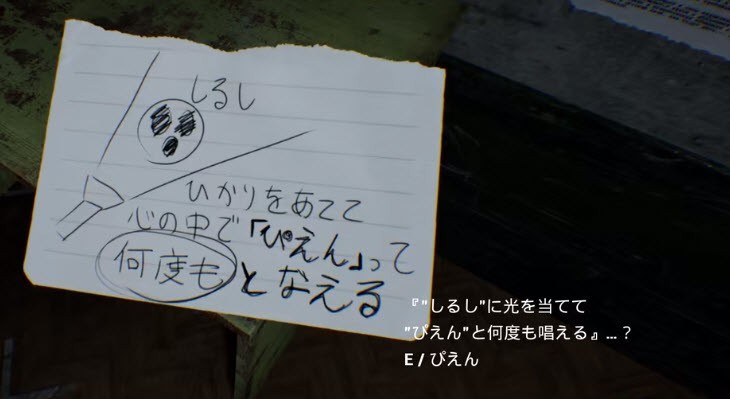 しるし
ひかりをあてて
心の中で「ぴえん」って
何度も となえる
『"しるし"に光を当てて
"ぴえん"と何度も唱える』…？
E / ぴえん